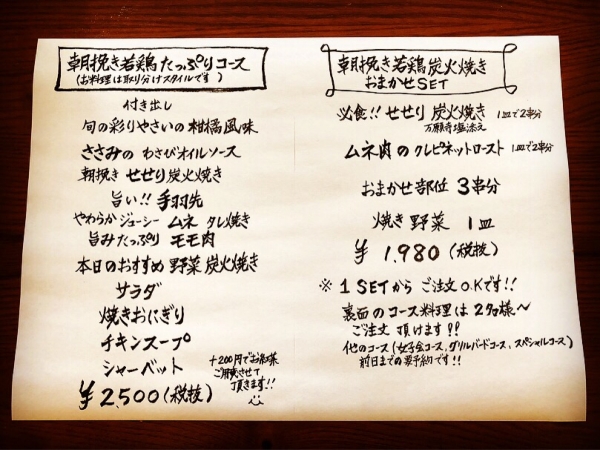 朝挽き若鶏たっぷりコース
(お料理は取り分けスタイルです)
付き出し
旬の彩りやさいの柑橘風味
ささみの わさびオイルソース
朝挽き せせり炭火焼き
旨い!! 手羽先
やわらかジューシー ムネ タレ焼き
旨みたっぷり モモ肉
本日のおすすめ 野菜 炭火焼き
サラダ
焼きおにぎり
チキンスープ
シャーベット
¥2,500(税抜)
+200円でお
ご用意させて
頂きます!!
朝挽き若鶏炭火焼き
おまかせSET
必食!! せせり 炭火焼き 1皿で2串分
万願寺塩添え
ムネ肉の クレピネットロースト 1皿で2串分
おまかせ部位 3串分
焼き野菜 1皿
¥1,980(税抜)
※1SETから ご注文O.Kです!!
裏面のコース料理は2名様〜
ご注文 頂けます!!
他のコース(女子会コース、グリルバードコース、スペシャルコース)
前日までの要予約です!!